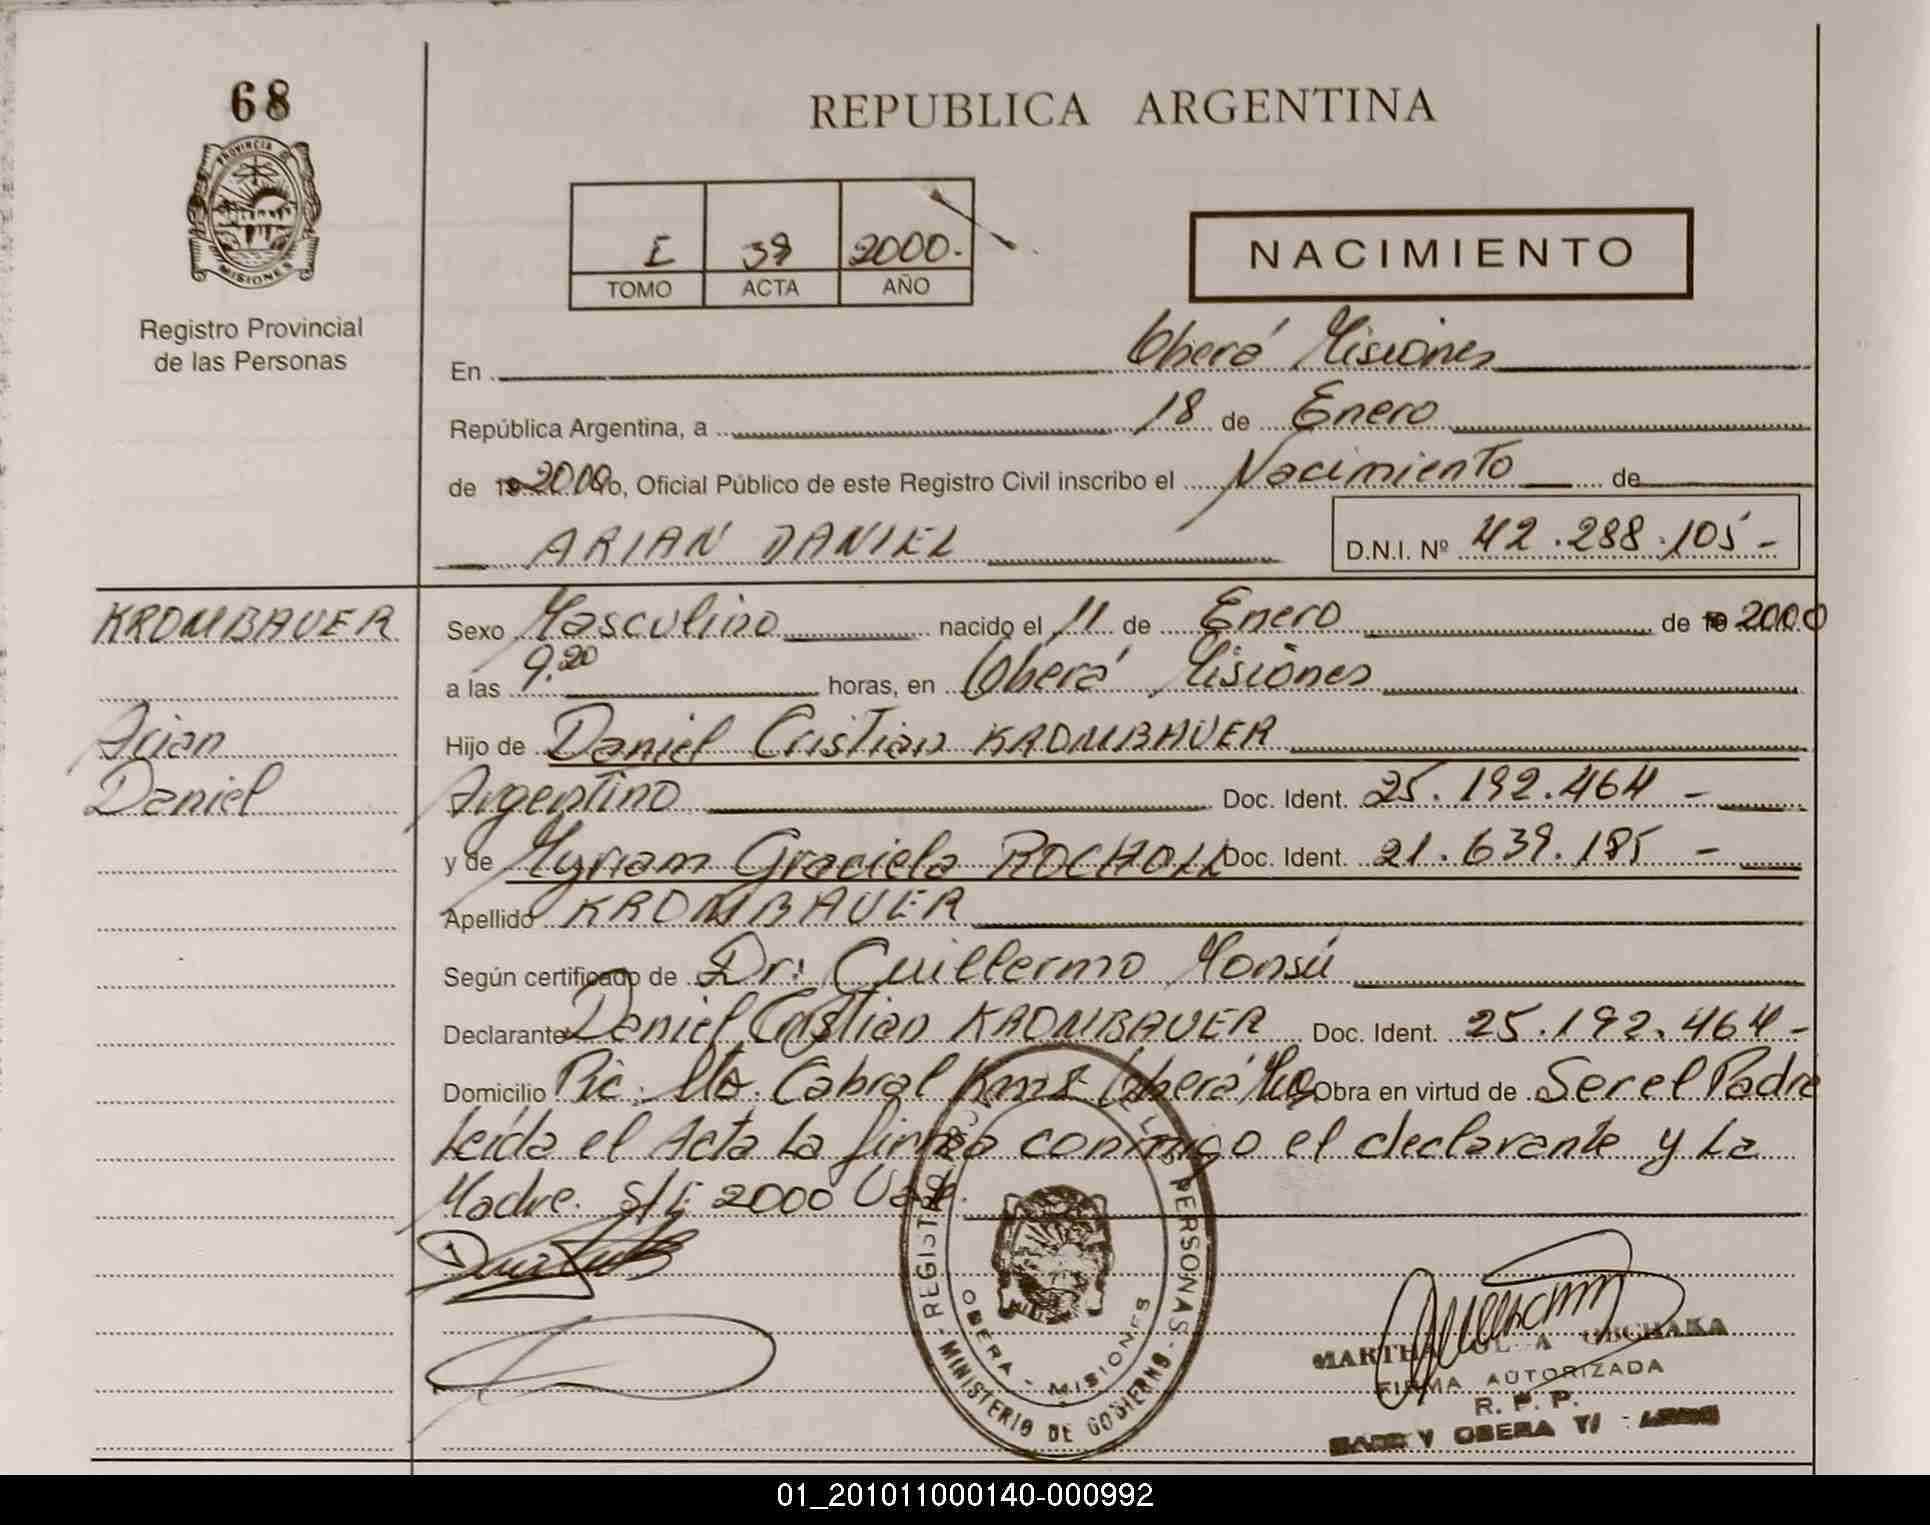 68
PROVINCIA DE
MISIONES
Registro Provincial
de las Personas
REPUBLICA ARGENTINA
E 39 2000.-
TOMO ACTA AÑO
NACIMIENTO
En Oberá Misiones
República Argentina, a 18 de Enero
de 19 2000 yo, Oficial Público de este Registro Civil inscribo el Nacimiento de
ARIAN DANIEL D.N.I. Nº 42.288.105-
KROMBAUER
Arian
Daniel
Sexo Masculino nacido el 11 de Enero de 19 2000
a las 9.20 horas, en Oberá Misiones
Hijo de Daniel Cristian KROMBAUER
Argentino Doc. Ident. 25.192.464-
y de Myriam Graciela ROCHOLL Doc. Ident. 21.639.185-
Apellido KROMBAUER
Según certificado de Dr: Guillermo Monsú
Declarante Daniel Cristian KROMBAUER Doc. Ident. 25.192.464-
Domicilio Pic: Sto. Cabral Km 8 Oberá Mnes Obra en virtud de Ser el Padre
Leída el Acta La firma conmigo el declarante y La
Madre. S/E 2000 Vale.
REGISTRO PERSONAS
OBERA - MISIONES
MINISTERIO DE GOBIERNO
MARTHA
FIRMA AUTORIZADA
R. P. P.
OBERA
01_201011000140-000992